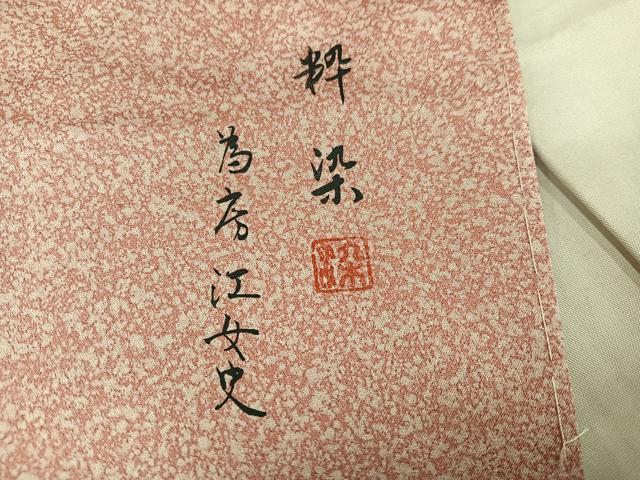 粋染
為房江女史